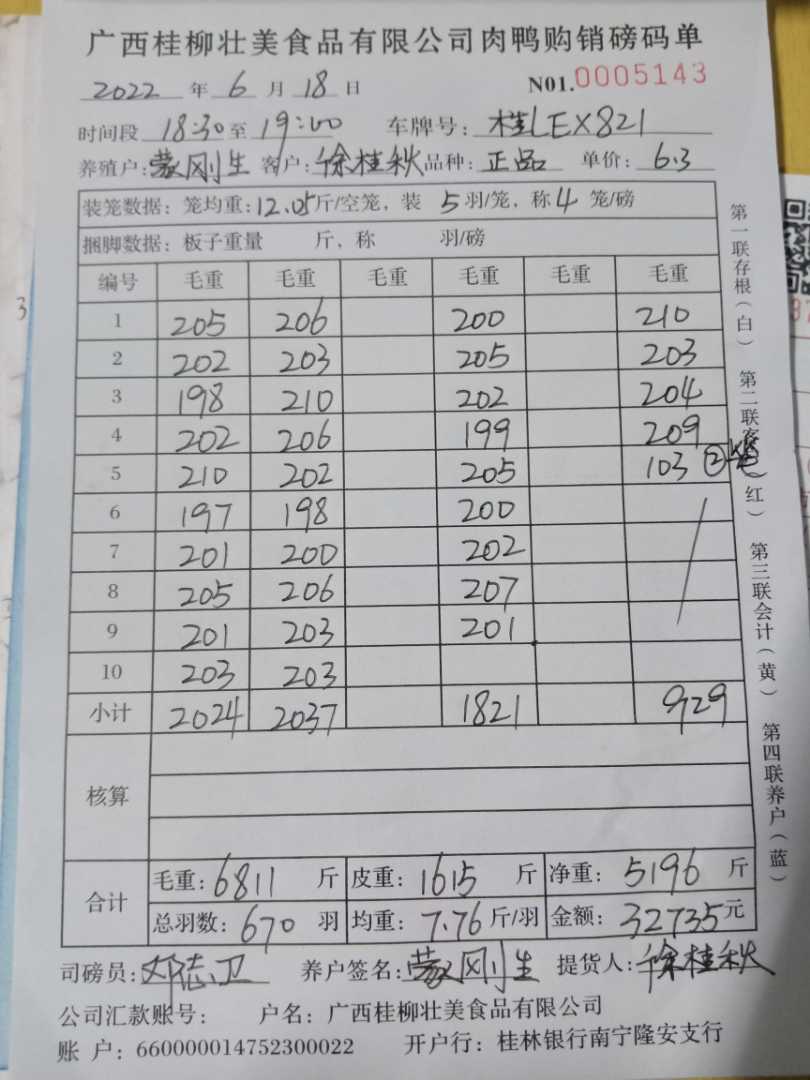 广西桂柳壮美食品有限公司肉鸭购销磅码单
2022 年 6 月 18 日 N01.0005143
时间段 18:30 至 19:00 车牌号: 桂LEX821
养殖户: 蒙刚生 客户: 徐桂秋 品种: 正品 单价: 6.3
装笼数据: 笼均重: 12.05 斤/空笼, 装 5 羽/笼, 称 4 笼/磅
捆脚数据: 板子重量 斤, 称 羽/磅
编号 毛重 毛重 毛重 毛重 毛重 毛重
1 205 206 200 210
2 202 203 205 203
3 198 210 202 204
4 202 206 199 209
5 210 202 205 103 ②笼
6 197 198 200
7 201 200 202
8 205 206 207
9 201 203 201
10 203 203
小计 2024 2037 1821 929
核算
合计
毛重: 6811 斤 皮重: 1615 斤 净重: 5196 斤
总羽数: 670 羽 均重: 7.76 斤/羽 金额: 32735 元
司磅员: 邓志卫 养户签名: 蒙刚生 提货人: 徐桂秋
公司汇款账号: 户名: 广西桂柳壮美食品有限公司
账 户: 660000014752300022 开户行: 桂林银行南宁隆安支行
第一联存根(白) 第二联客户(红) 第三联会计(黄) 第四联养户(蓝)